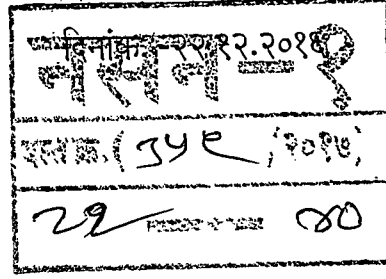 दिनांक २२.१२.२०१६
नसन-१
दस्त क्र.( ३५९ /२०१७)
२१ — ४०